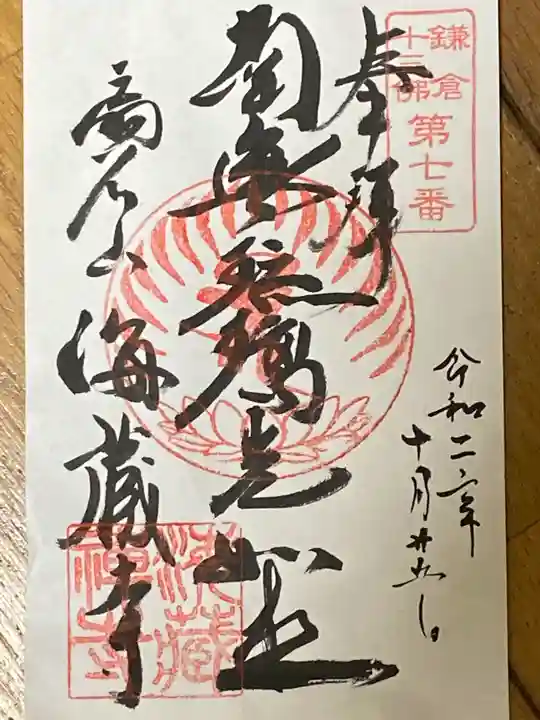 鎌倉
十三佛
第七番
奉拝
令和二年
十月廿五日
南無薬師瑠光如来
扇谷山 海蔵寺
海蔵
禅寺